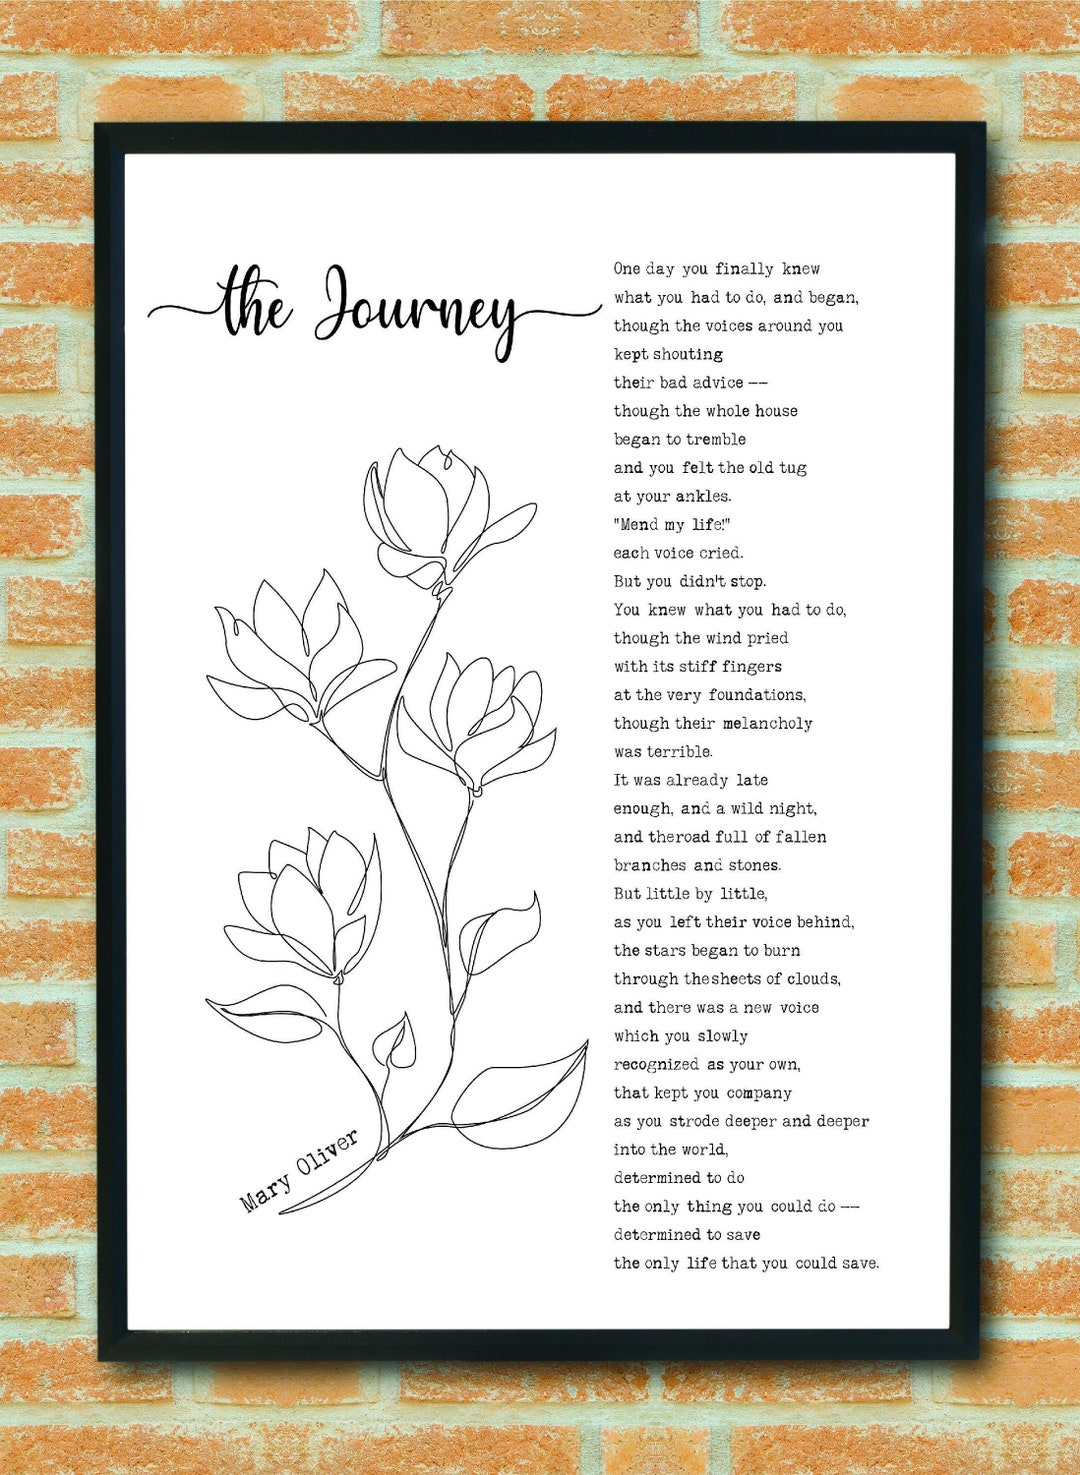 the Journey
One day you finally knew
what you had to do, and began,
though the voices around you
kept shouting
their bad advice --
though the whole house
began to tremble
and you felt the old tug
at your ankles.
"Mend my life!"
each voice cried.
But you didn't stop.
You knew what you had to do,
though the wind pried
with its stiff fingers
at the very foundations,
though their melancholy
was terrible.
It was already late
enough, and a wild night,
and theroad full of fallen
branches and stones.
But little by little,
as you left their voice behind,
the stars began to burn
through thesheets of clouds,
and there was a new voice
which you slowly
recognized as your own,
that kept you company
as you strode deeper and deeper
into the world,
determined to do
the only thing you could do --
determined to save
the only life that you could save.
Mary Oliver